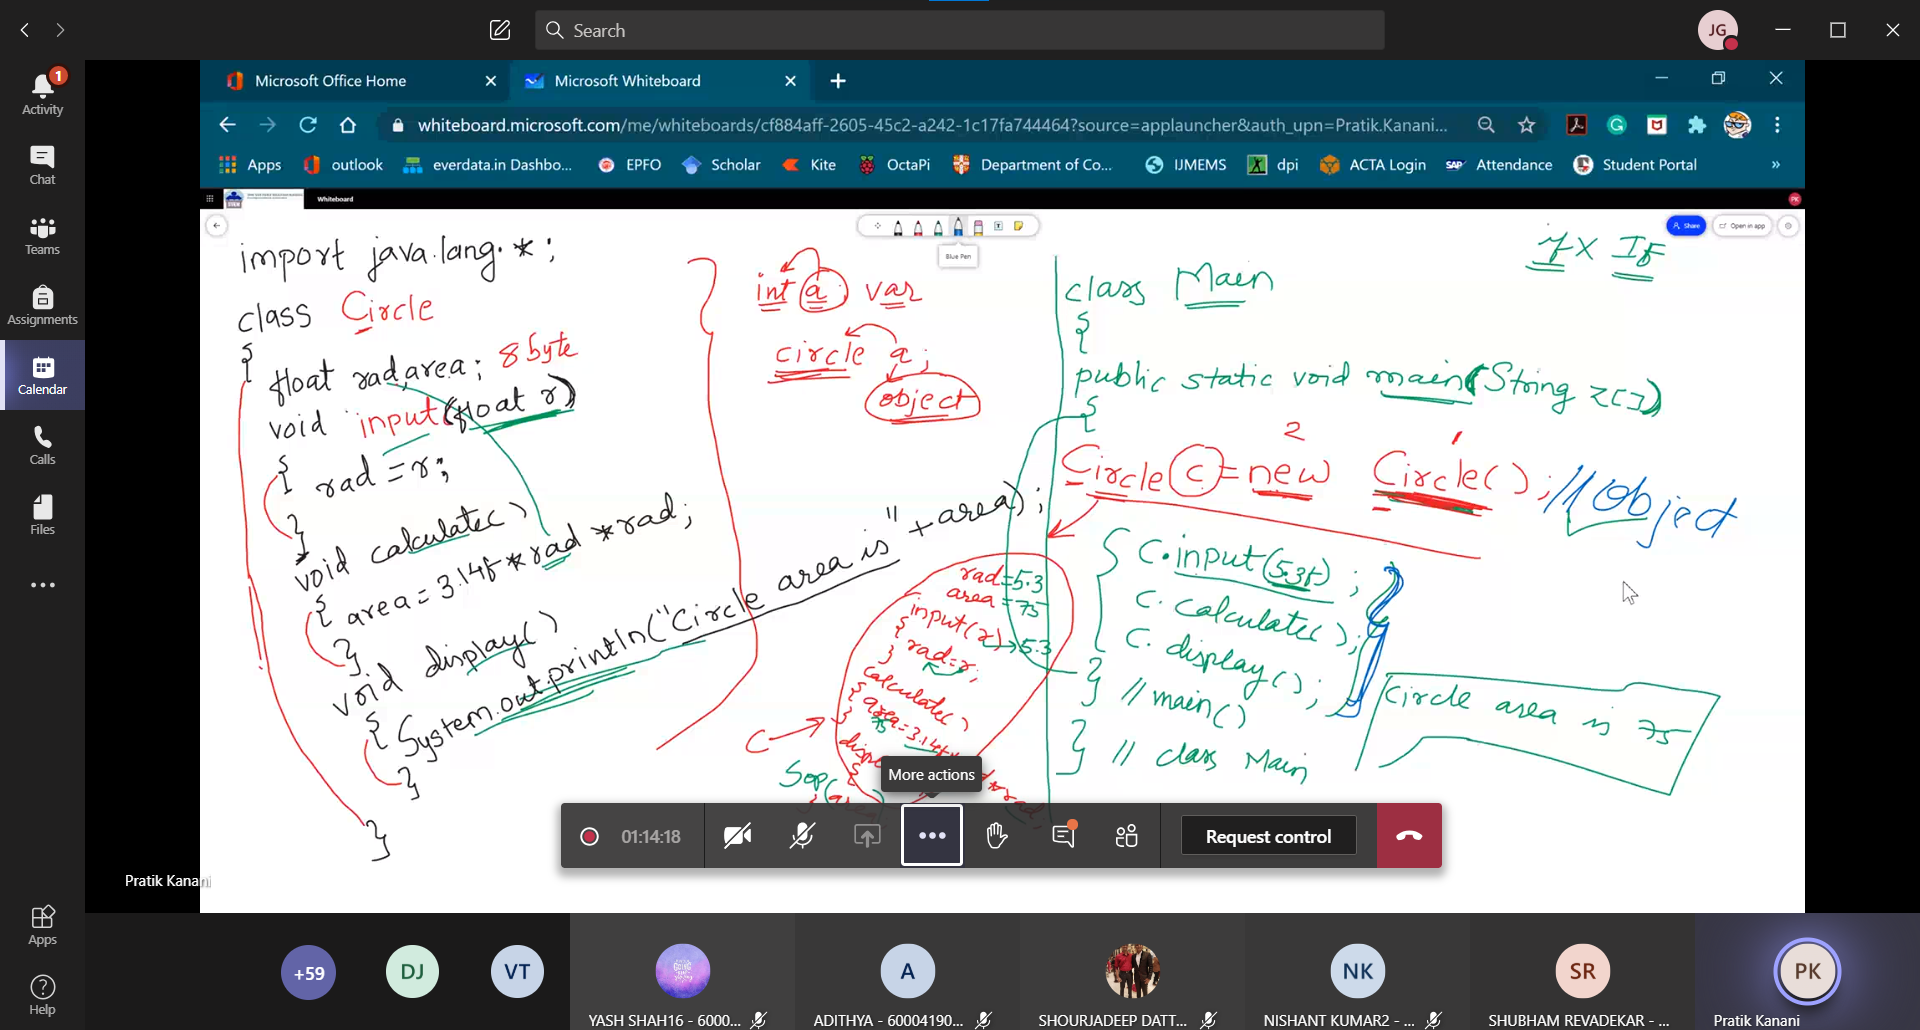 Search
JG
1
Activity
Chat
Teams
Assignments
Calendar
Calls
Files
Apps
Help
Microsoft Office Home
Microsoft Whiteboard
whiteboard.microsoft.com/me/whiteboards/cf884aff-2605-45c2-a242-1c17fa744464?source=applauncher&auth_upn=Pratik.Kanani...
Apps outlook everdata.in Dashbo... EPFO Scholar Kite OctaPi Department of Co... IJMEMS dpi ACTA Login Attendance Student Portal »
Whiteboard
Share
Open in app
Blue Pen
import java.lang.*;
class Circle
{
float rad,area; 8 byte
void input(float r)
{ rad = r;
}
void calculate()
{ area = 3.14f * rad * rad;
}
void display()
{ System.out.println("Circle area is" + area);
}
}
int a var
circle a;
object
if X If
class Main
{
public static void main(String z[])
{
2 1
Circle c = new Circle(); //Object
{ c.input(5.3f);
c.calculate();
c.display();
} // main()
} // class Main
Circle area is 75
rad=5.3
area=75
input(r)→5.3
{ rad=r;
}
calculate()
{ area=3.14f
75
}
C
Sop(
*rad
More actions
01:14:18
Request control
Pratik Kanani
+59
DJ
VT
A
NK
SR
PK
YASH SHAH16 - 6000...
ADITHYA - 60004190...
SHOURJADEEP DATT...
NISHANT KUMAR2 - ...
SHUBHAM REVADEKAR - ...
Pratik Kanani